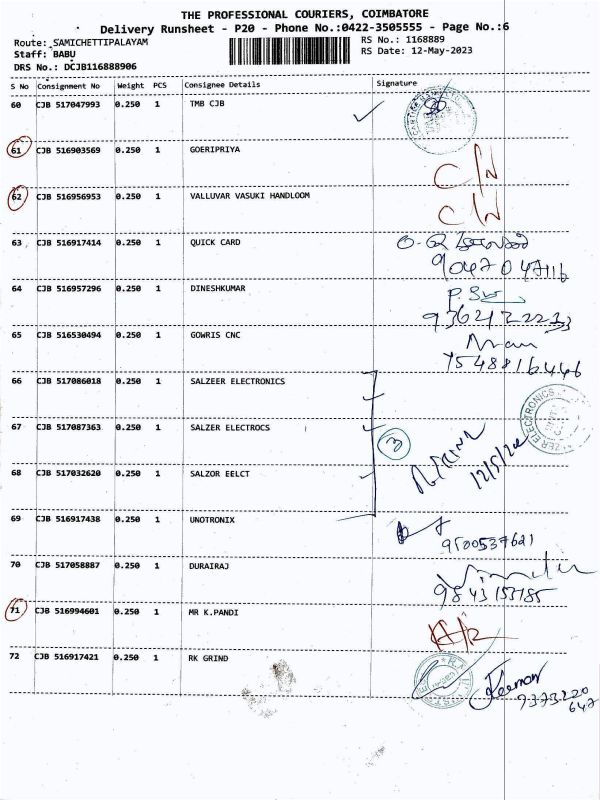 THE PROFESSIONAL COURIERS, COIMBATORE
Delivery Runsheet - P20 - Phone No.:0422-3505555 - Page No.:6
Route: SAMICHETTIPALAYAM RS No.: 1168889
Staff: BABU RS Date: 12-May-2023
DRS No.: DCJB116888906
S No Consignment No Weight PCS Consignee Details Signature
60 CJB 517047993 0.250 1 TMB CJB
61 CJB 516903569 0.250 1 GOERIPRIYA
C/N
62 CJB 516956953 0.250 1 VALLUVAR VASUKI HANDLOOM
C/N
63 CJB 516917414 0.250 1 QUICK CARD
9047047116
64 CJB 516957296 0.250 1 DINESHKUMAR
65 CJB 516530494 0.250 1 GOWRIS CNC
7548816446
66 CJB 517086018 0.250 1 SALZEER ELECTRONICS
67 CJB 517087363 0.250 1 SALZER ELECTROCS
3
68 CJB 517032620 0.250 1 SALZOR EELCT
69 CJB 516917438 0.250 1 UNOTRONIX
9500537621
70 CJB 517058887 0.250 1 DURAIRAJ
9843153185
71 CJB 516994601 0.250 1 MR K.PANDI
72 CJB 516917421 0.250 1 RK GRIND